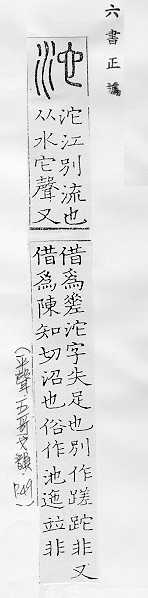 六書正譌
沱
沱江別流也
从水它聲又
借為差沱字失足也別作蹉跎非又
借為陳知切沼也俗作池迆竝非
(平聲·五哥戈韻·P.49)